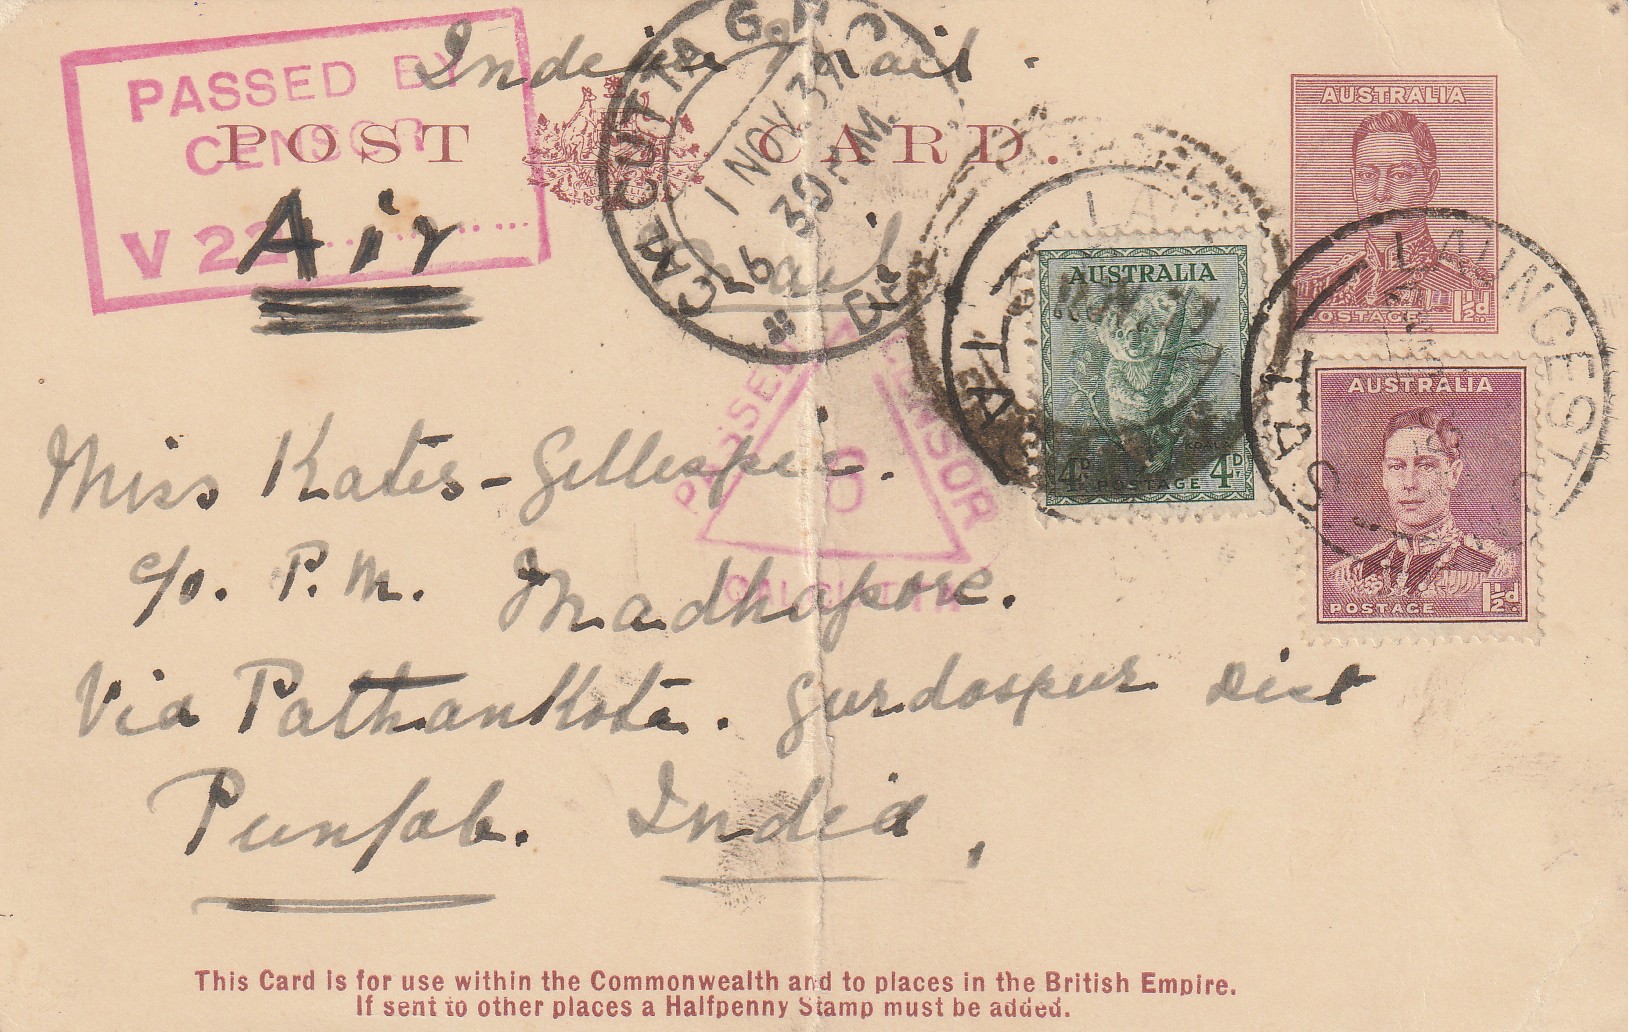 Indian Mail.
PASSED BY
CENSOR
V 22
POST CARD.
Air Mail
CALCUTTA G.P.O.
1 NOV. 39
6 30 P.M.
AUSTRALIA
POSTAGE 1½d
LAUNCESTON
TAS
AUSTRALIA
KOALA
4D. 4D.
POSTAGE
TAS
AUSTRALIA
POSTAGE 1½d
PASSED CENSOR
8
CALCUTTA
Miss Kates-Gillespie.
c/o. P.M. Madhapore.
Via PathanKote. Gurdaspur Dist
Punjab. India,
This Card is for use within the Commonwealth and to places in the British Empire.
If sent to other places a Halfpenny Stamp must be added.